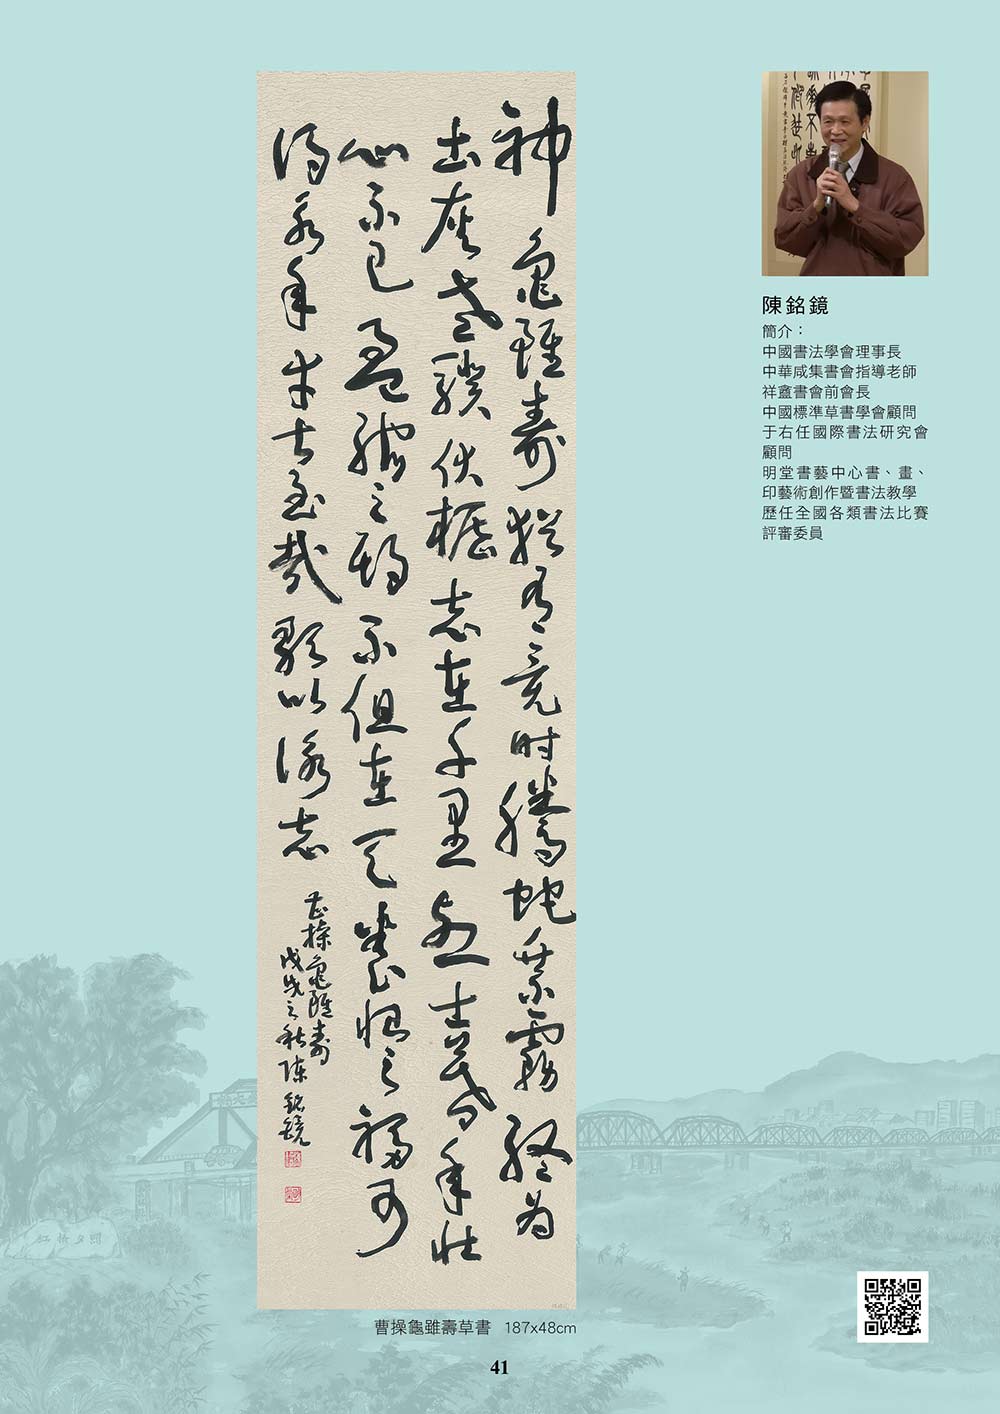 神龜雖壽猶有竟時騰蛇乘霧終為
土灰老驥伏櫪志在千里烈士暮年壯
心不已盈縮之期不但在天養怡之福可
得永年幸甚至哉歌以詠志
曹操龜雖壽
戊戌之秋陳銘鏡
陳銘鏡
簡介：
中國書法學會理事長
中華咸集書會指導老師
祥龕書會前會長
中國標準草書學會顧問
于右任國際書法研究會
顧問
明堂書藝中心書、畫、
印藝術創作暨書法教學
歷任全國各類書法比賽
評審委員
曹操龜雖壽草書 187x48cm
41